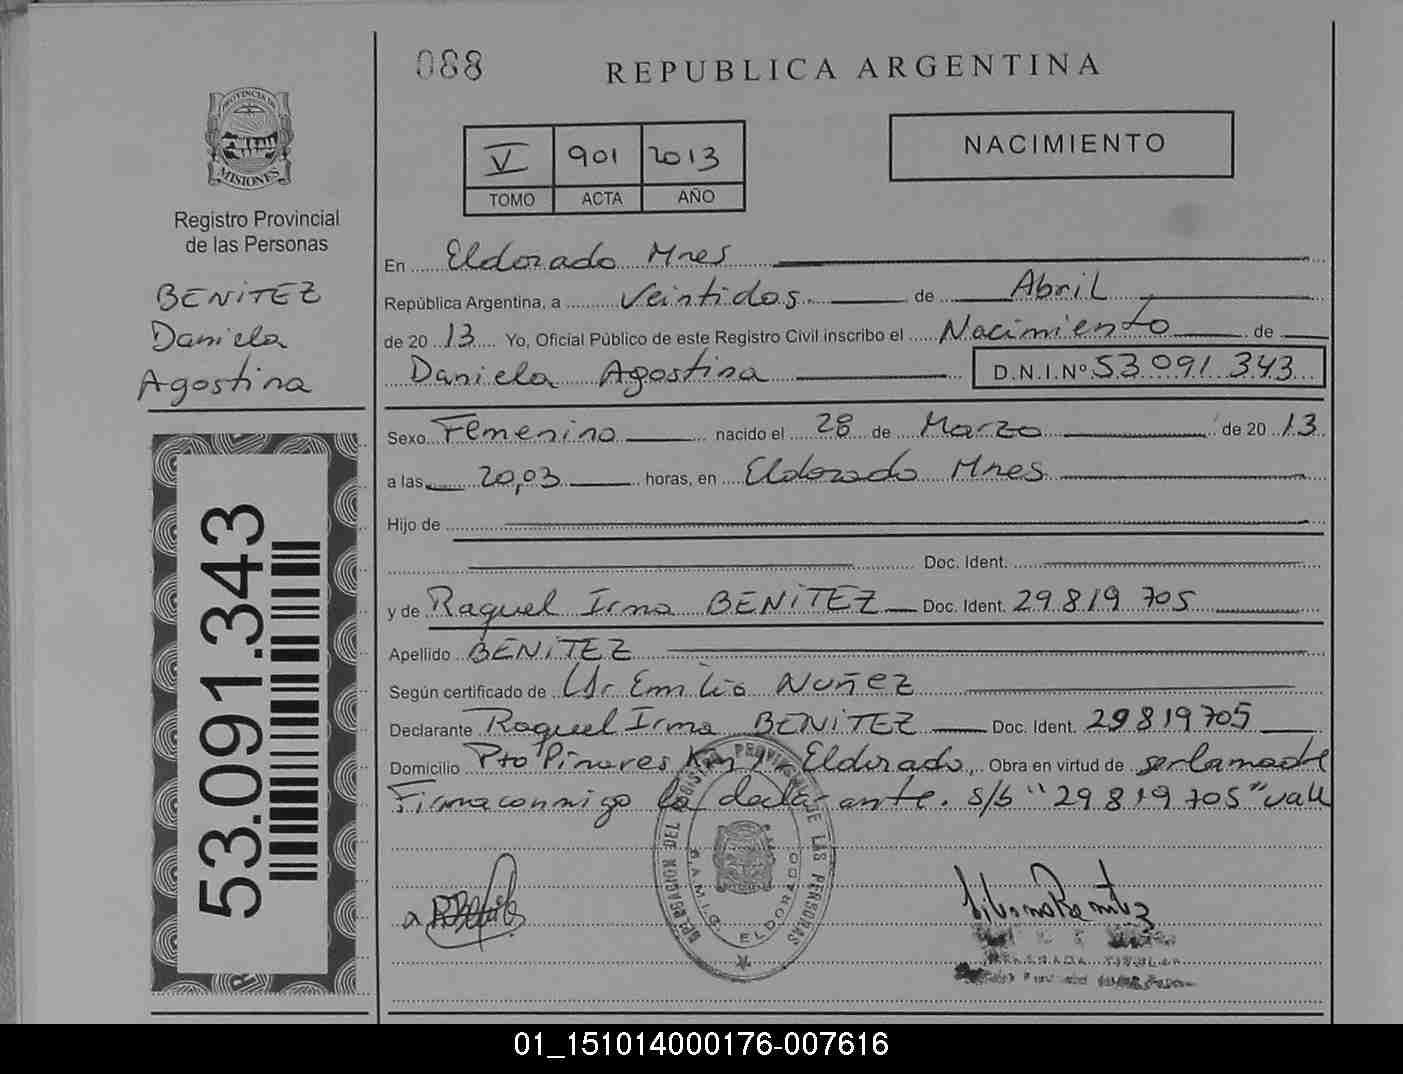 088
REPUBLICA ARGENTINA
PROVINCIA DE
MISIONES
Registro Provincial
de las Personas
BENITEZ
Daniela
Agostina
53.091.343
V 901 2013
TOMO ACTA AÑO
NACIMIENTO
En Eldorado Mnes
República Argentina, a Veintidos de Abril
de 20 13 Yo, Oficial Público de este Registro Civil inscribo el Nacimiento de
Daniela Agostina D.N.I.Nº 53.091.343
Sexo Femenino nacido el 28 de Marzo de 20 13
a las 20,03 horas, en Eldorado Mnes
Hijo de
Doc. Ident.
y de Raquel Irma BENITEZ Doc. Ident. 29.819.705
Apellido BENITEZ
Según certificado de Dr Emilio Nuñez
Declarante Raquel Irma BENITEZ Doc. Ident. 29819705
Domicilio Pto Pinares Eldorado Obra en virtud de ser la madre
Firma conmigo la declarante. s/b "29 819 705" vale
DELEGACION DEL REGISTRO PROVINCIAL DE LAS PERSONAS
ELDORADO
01_151014000176-007616